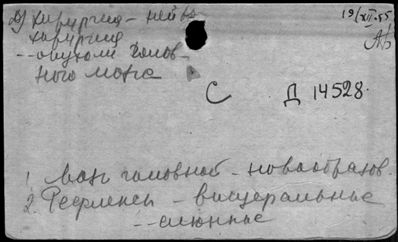 а) Хирургия - нейро
хирургия
-- опухоли голов-
ного мозга
19/XII-55
С Д 14528.
1 Мозг головной - новообразов.
2. Рефлексы - висцеральные
-- слюнные